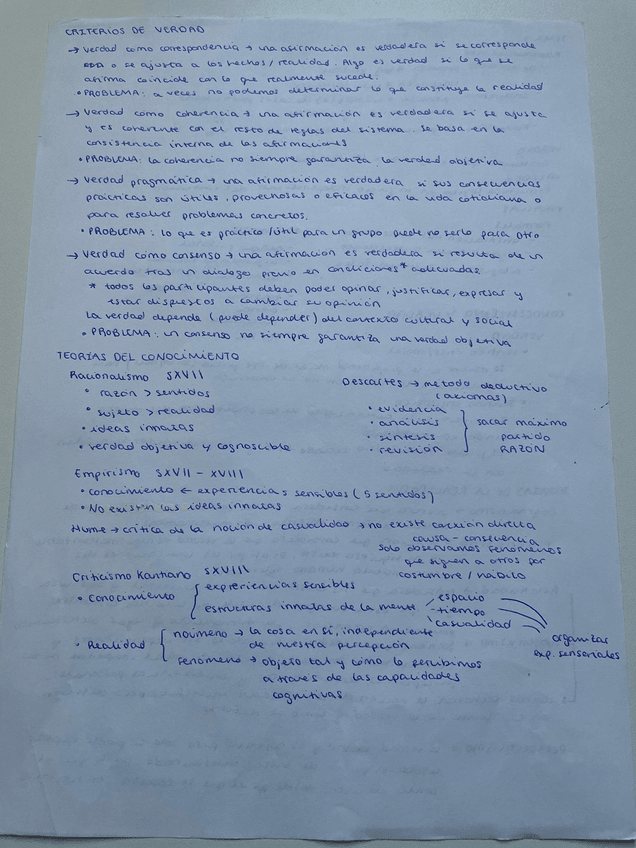 CRITERIOS DE VERDAD
→ Verdad como correspondencia → una afirmación es verdadera si se corresponde
o se ajusta a los hechos/realidad. Algo es verdad si lo que se
afirma coincide con lo que realmente sucede.
• PROBLEMA: a veces no podemos determinar lo que constituye la realidad
→ Verdad como coherencia → una afirmación es verdadera si se ajusta
y es coherente con el resto de reglas del sistema. Se basa en la
consistencia interna de las afirmaciones
• PROBLEMA: la coherencia no siempre garantiza la verdad objetiva
→ Verdad pragmática → una afirmación es verdadera si sus consecuencias
prácticas son útiles, provechosas o eficaces en la vida cotidiana o
para resolver problemas concretos.
• PROBLEMA: lo que es práctico/útil para un grupo puede no serlo para otro
→ Verdad como consenso → una afirmación es verdadera si resulta de un
acuerdo tras un diálogo previo en condiciones* adecuadas
* todos los participantes deben poder opinar, justificar, expresar y
estar dispuestos a cambiar su opinión
la verdad depende (puede depender) del contexto cultural y social
• PROBLEMA: un consenso no siempre garantiza una verdad objetiva
TEORÍAS DEL CONOCIMIENTO
Racionalismo SXVII
• razón > sentidos
• sujeto > realidad
• ideas innatas
• verdad objetiva y cognoscible
Descartes → método deductivo
(axiomas)
• evidencia
• análisis
• síntesis
• revisión
sacar máximo
partido
RAZÓN
Empirismo SXVII - XVIII
• conocimiento ← experiencias sensibles (5 sentidos)
• No existen las ideas innatas
Hume → crítica de la noción de casualidad → no existe conexión directa
causa - consecuencia
solo observamos fenómenos
que siguen a otros por
costumbre/hábito
Criticismo Kantiano SXVIII
• Conocimiento
experiencias sensibles
estructuras innatas de la mente
espacio
tiempo
casualidad
organizar
exp. sensoriales
• Realidad
noúmeno → la cosa en sí, independiente
de nuestra percepción
fenómeno → objeto tal y cómo lo percibimos
a través de las capacidades
cognitivas